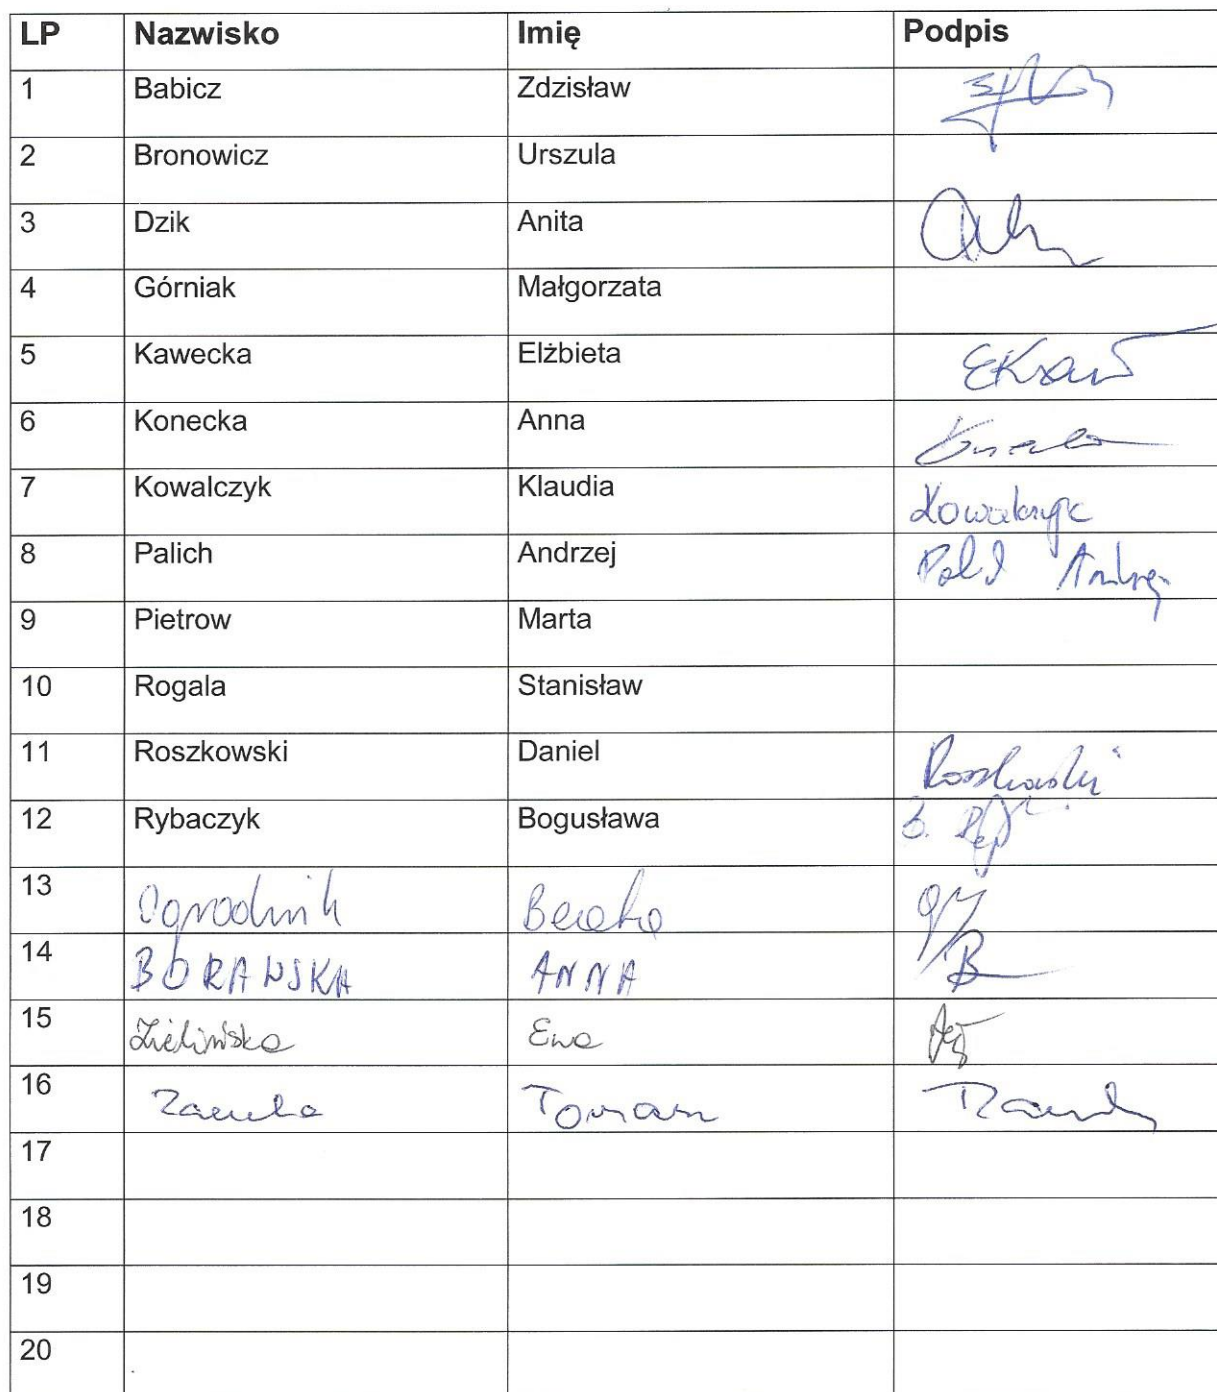 LP Nazwisko Imię Podpis
1 Babicz Zdzisław
2 Bronowicz Urszula
3 Dzik Anita
4 Górniak Małgorzata
5 Kawecka Elżbieta
6 Konecka Anna
7 Kowalczyk Klaudia Kowalczyk
8 Palich Andrzej Andrzej
9 Pietrow Marta
10 Rogala Stanisław
11 Roszkowski Daniel Roszkowski
12 Rybaczyk Bogusława B.
13 Ogrodnik Beata
14 BORAWSKA ANNA
15 Zielińska Ewa
16 Tomasz
17
18
19
20